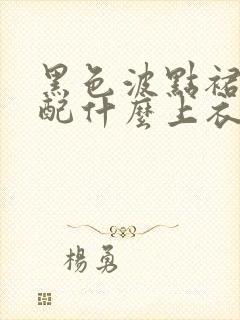 黑色波點裙
配什麼上衣
楊勇